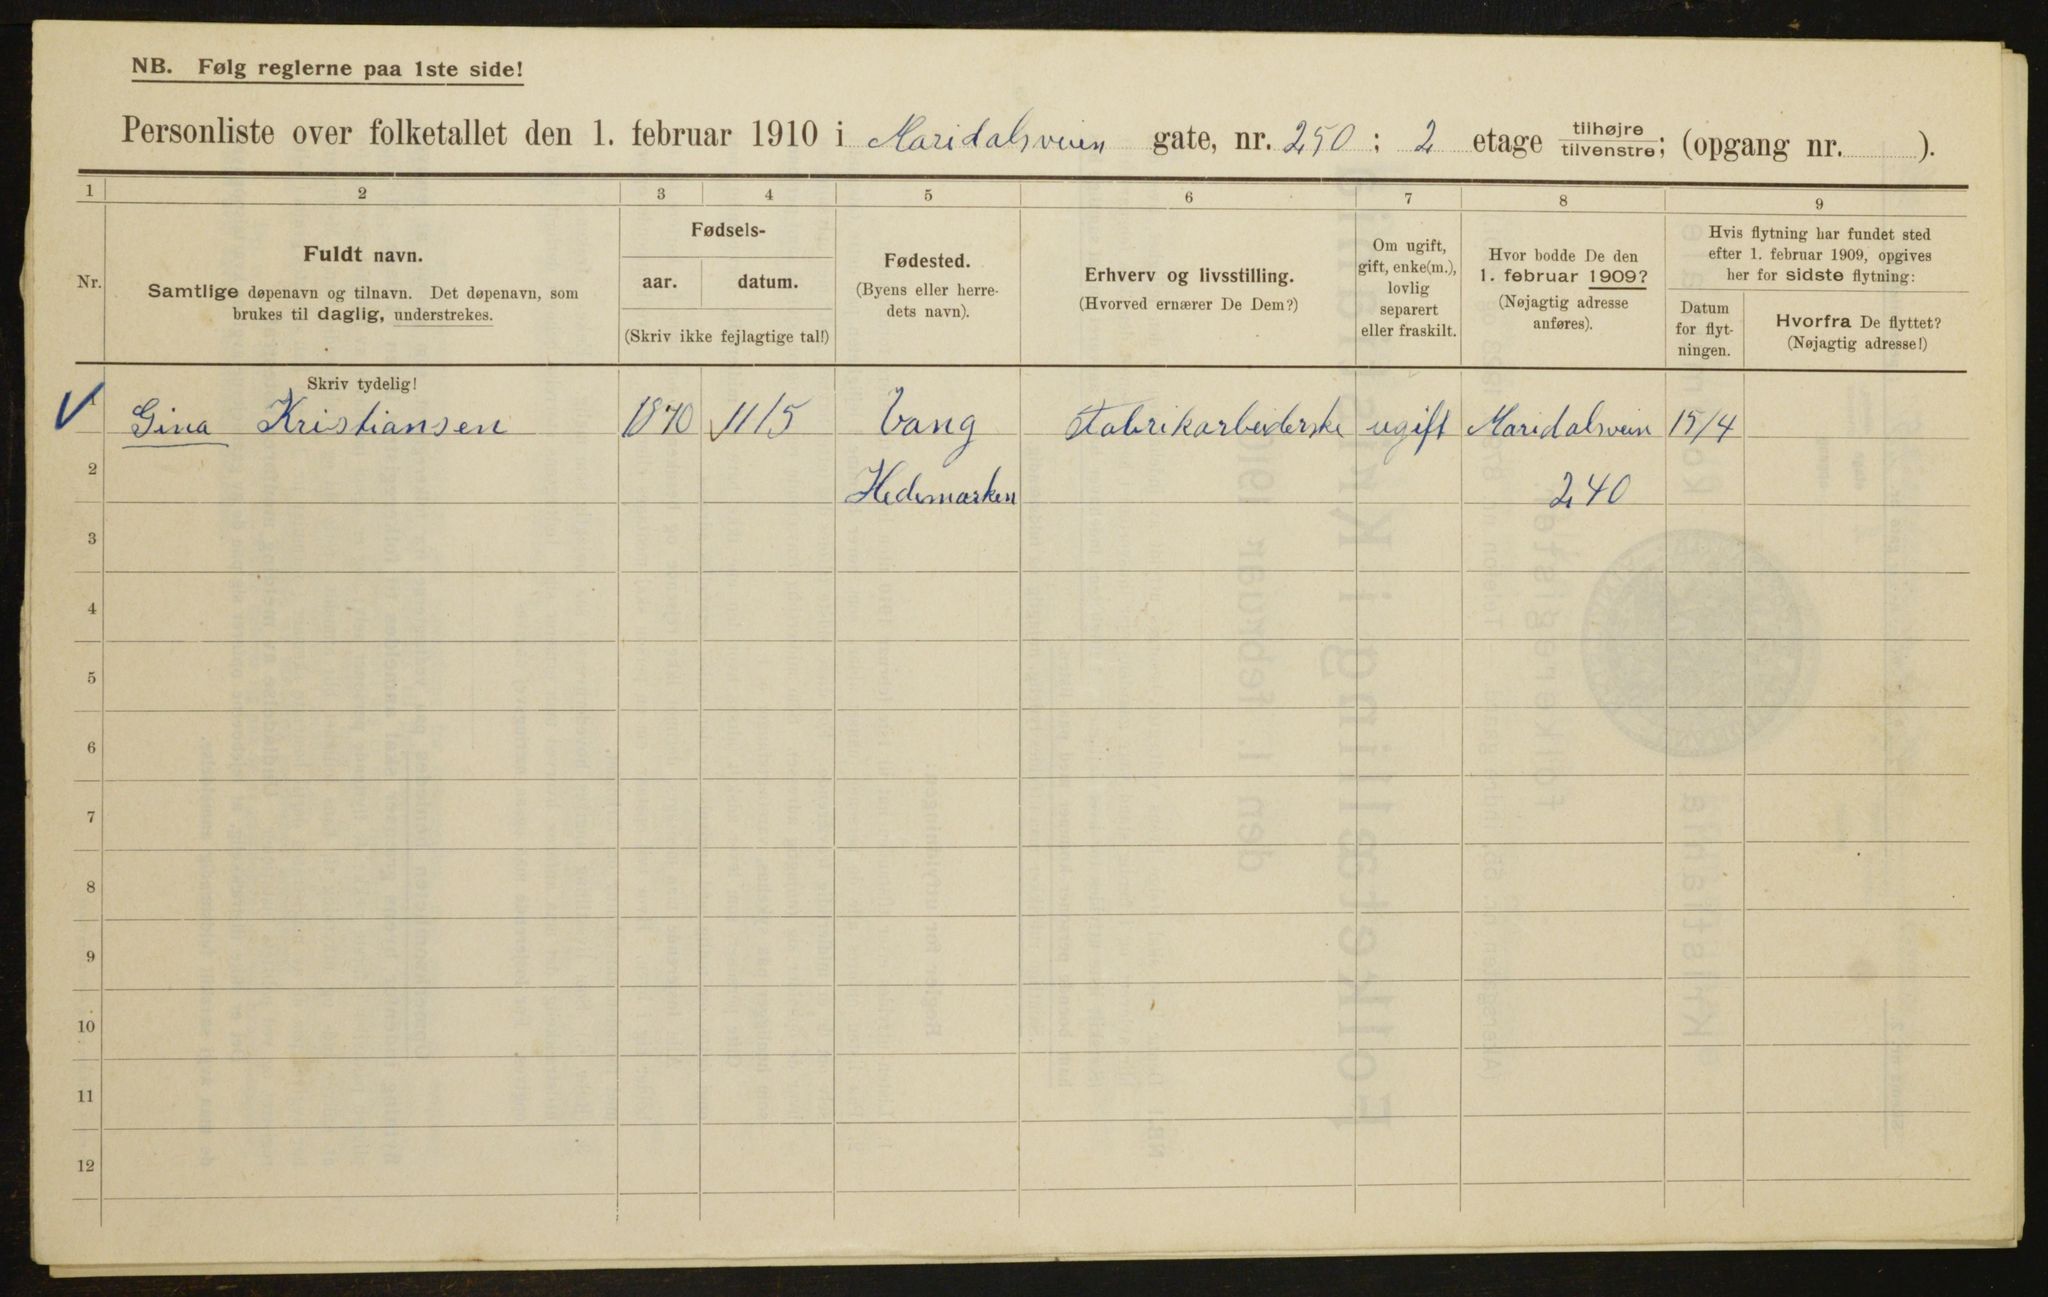 NB. Følg reglerne paa 1ste side!
Personliste over folketallet den 1. februar 1910 i Maridalsveien gate, nr. 250 ; 2 etage tilhøjre tilvenstre; (opgang nr. ).
1 2 3 4 5 6 7 8 9
Nr.
Fuldt navn.
Samtlige døpenavn og tilnavn. Det døpenavn, som
brukes til daglig, understrekes.
Fødsels-
aar. datum.
(Skriv ikke fejlagtige tal!)
Fødested.
(Byens eller herre-
dets navn).
Erhverv og livsstilling.
(Hvorved ernærer De Dem?)
Om ugift,
gift, enke(m.),
lovlig
separert
eller fraskilt.
Hvor bodde De den
1. februar 1909?
(Nøjagtig adresse
anføres).
Hvis flytning har fundet sted
efter 1. februar 1909, opgives
her for sidste flytning:
Datum
for flyt-
ningen.
Hvorfra De flyttet?
(Nøjagtig adresse!)
Skriv tydelig!
1 Gina Kristiansen 1870 11/5 Vang Fabrikarbeiderske ugift Maridalsveien 15/4
2 Hedemarken 240
3
4
5
6
7
8
9
10
11
12